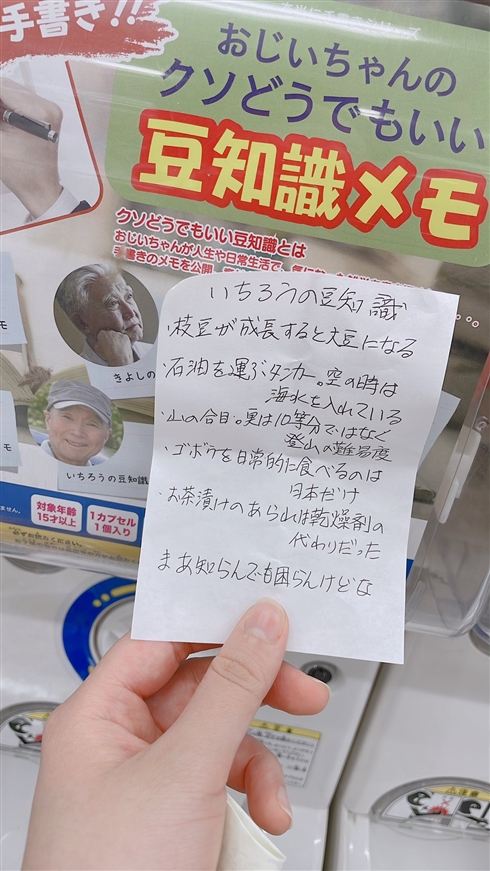 手書き!!
おじいちゃんの
クソどうでもいい
豆知識メモ
クソどうでもいい豆知識とは
おじいちゃんが人生や日常生活で、
手書きのメモを公開
いちろうの豆知識
・枝豆が成長すると大豆になる
・石油を運ぶタンカー。空の時は
海水を入れている
・山の合目。実は10等分ではなく
登山の難易度
・ゴボウを日常的に食べるのは
日本だけ
・お茶漬けのあられは乾燥剤の
代わりだった
まあ知らんでも困らんけどな
きよしの
いちろうの豆知識
対象年齢
15才以上
1カプセル
1個入り